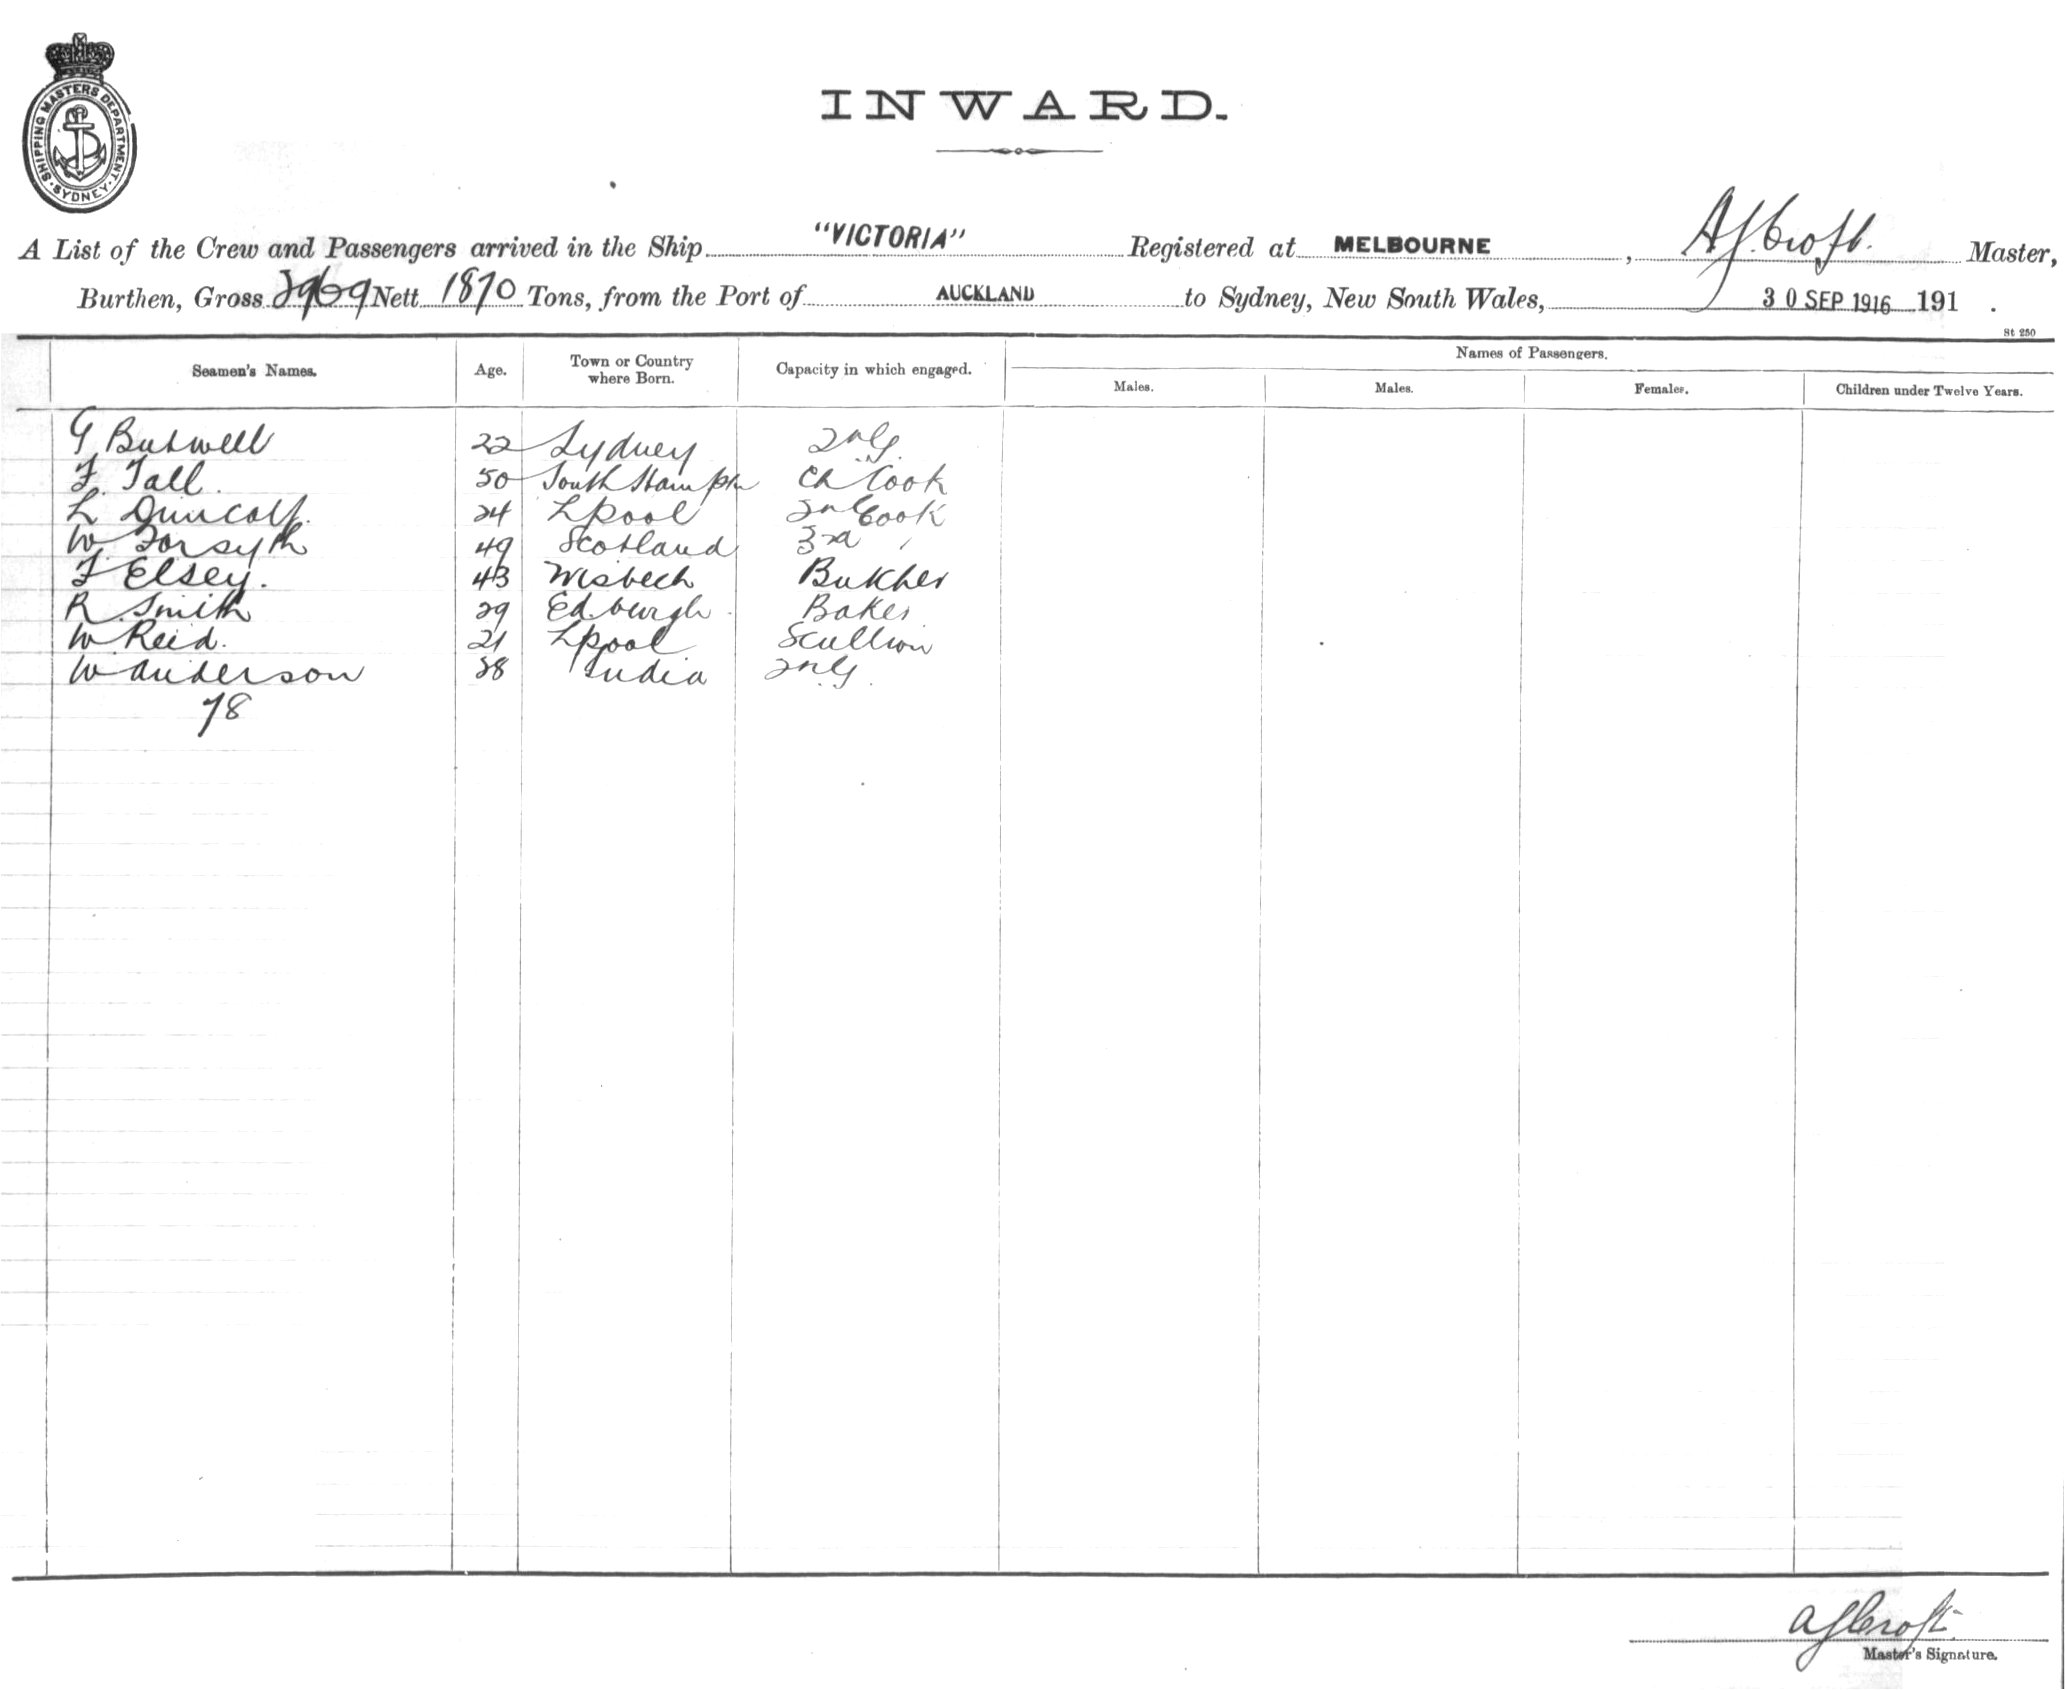 SHIPPING MASTERS DEPARTMENT. SYDNEY
INWARD.
A List of the Crew and Passengers arrived in the Ship "VICTORIA" Registered at MELBOURNE, A J. Croft. Master,
Burthen, Gross 2969 Nett 1870 Tons, from the Port of AUCKLAND to Sydney, New South Wales, 30 SEP 1916 191 .
St 250
Seamen's Names. Age. Town or Country where Born. Capacity in which engaged. Names of Passengers.
Males. Males. Females. Children under Twelve Years.
G Butwell 22 Sydney
F. Tall. 50 South Hampn Ch Cook
L Duncalf. 24 Lpool 2nd Cook
W Forsyth 49 Scotland 3rd "
F. Elsey. 43 Wisbech Butcher
R. Smith 29 Ed.burgh. Baker
W. Reid. 21 Lpool Scullion
W. Anderson 28 India
78
A J Croft.
Master's Signature.